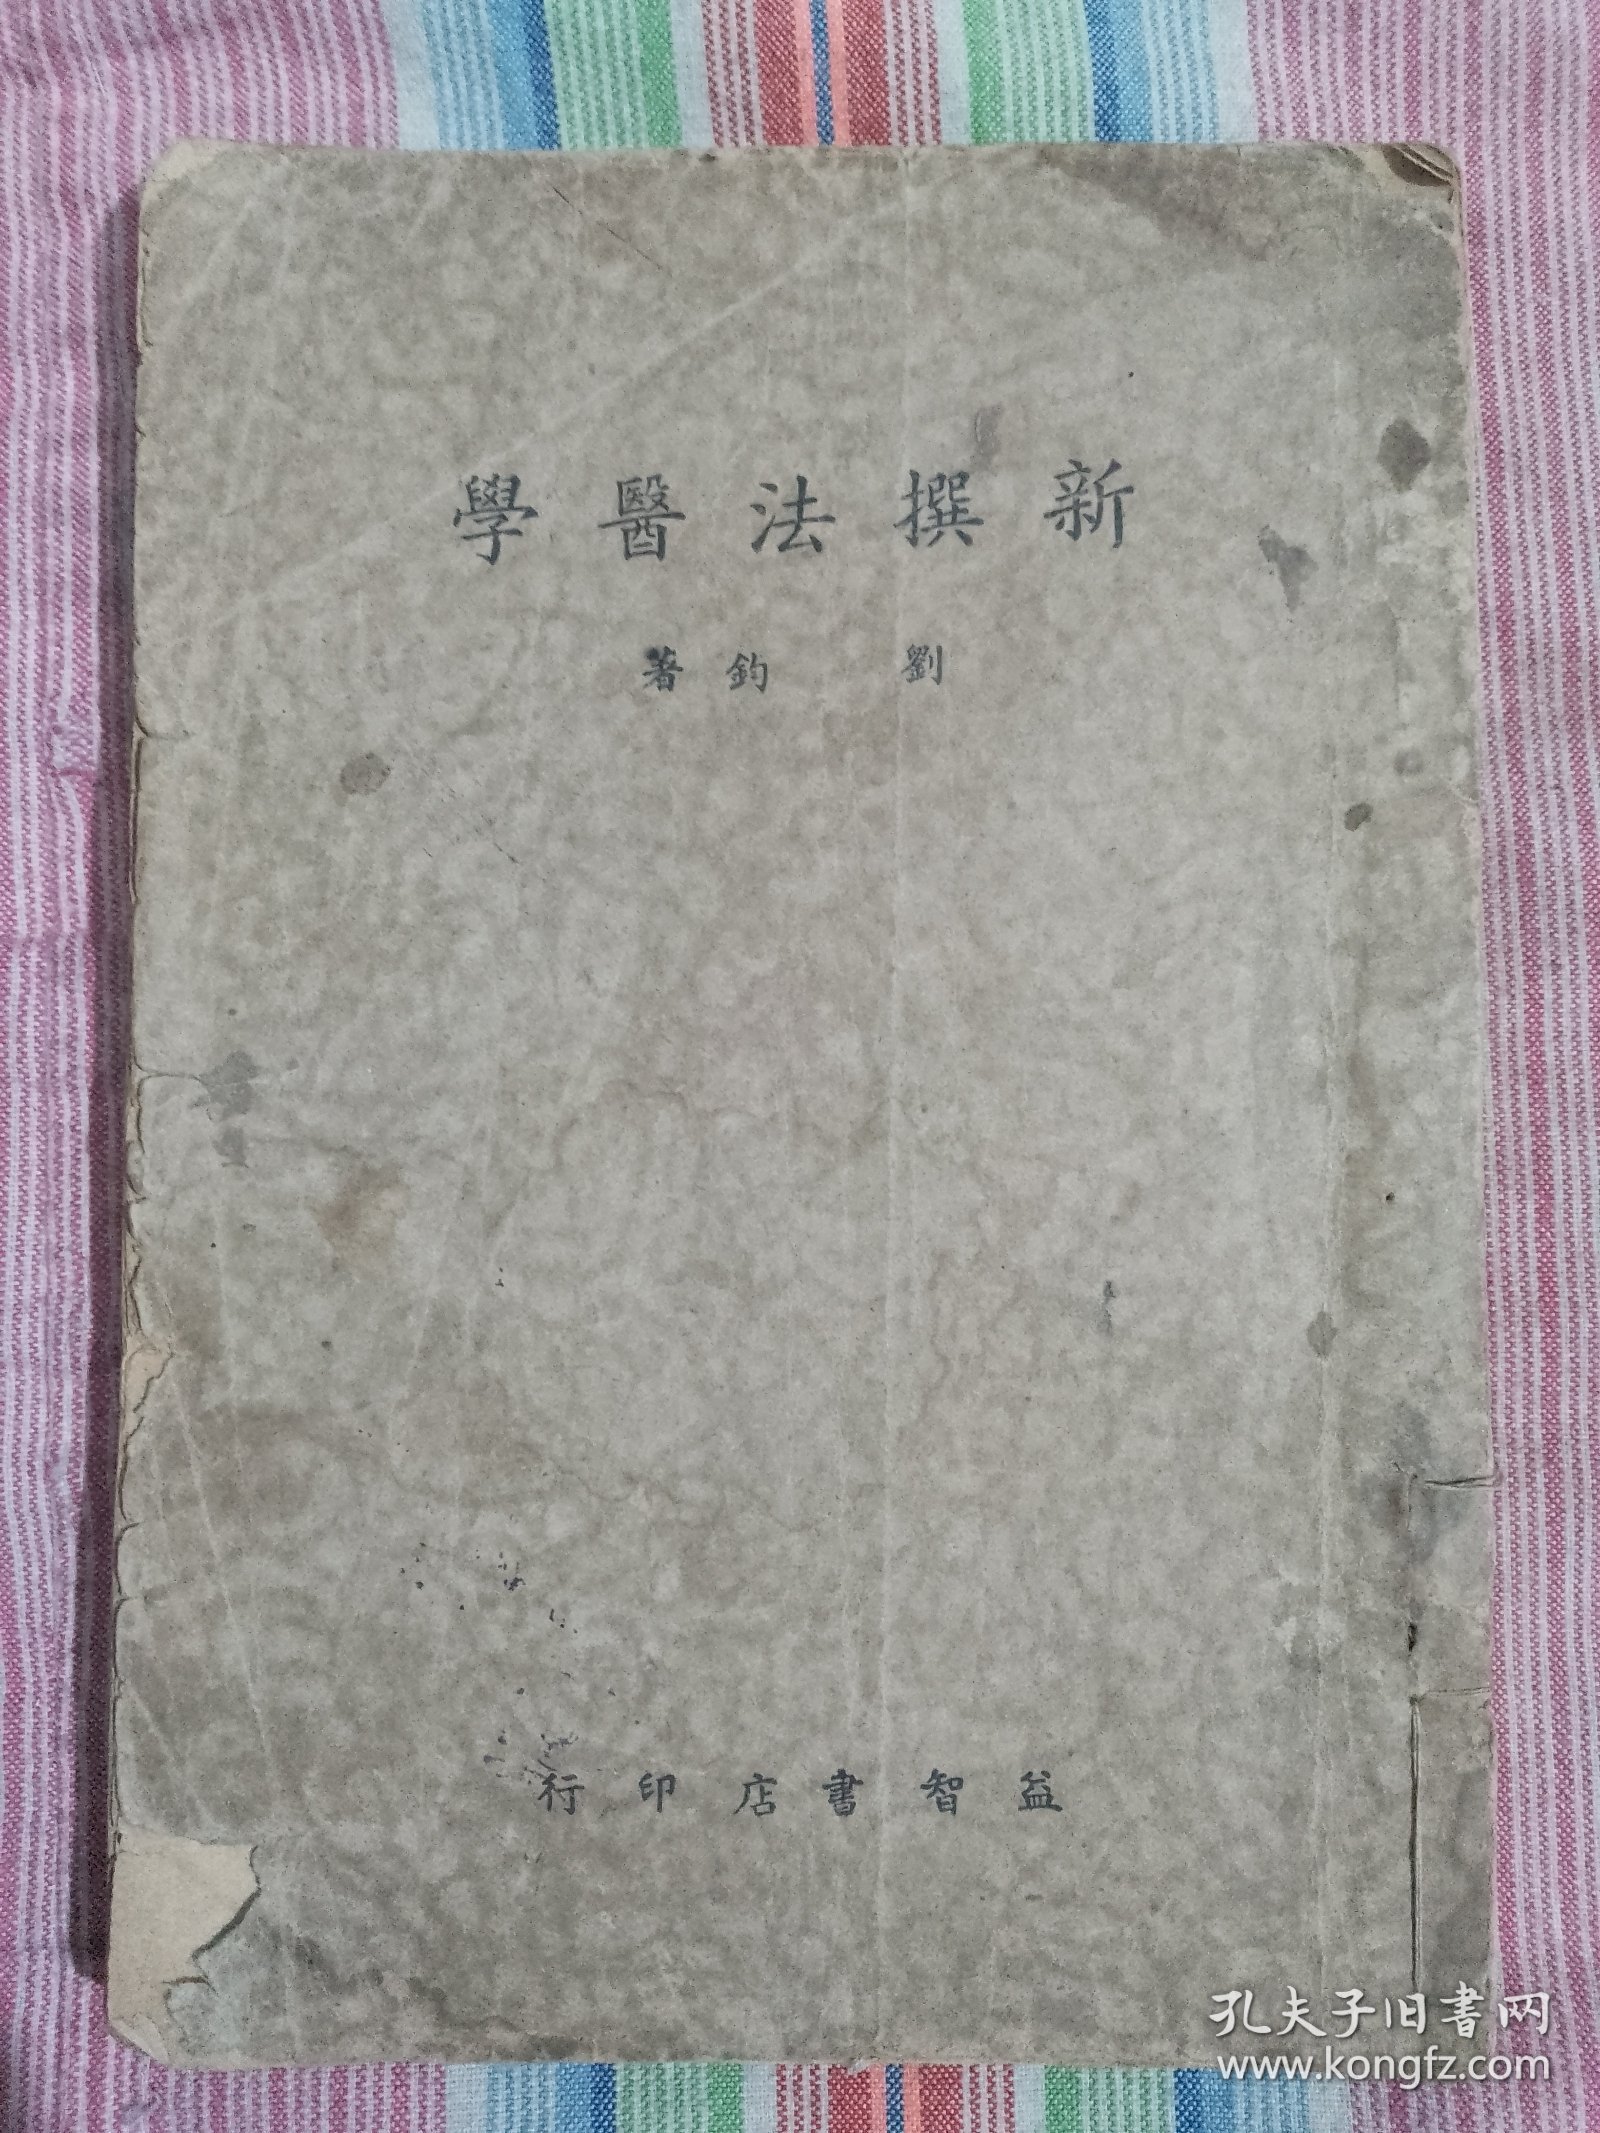 新撰法醫學
劉鈞著
益智書店印行
孔夫子旧書网
www.kongfz.com